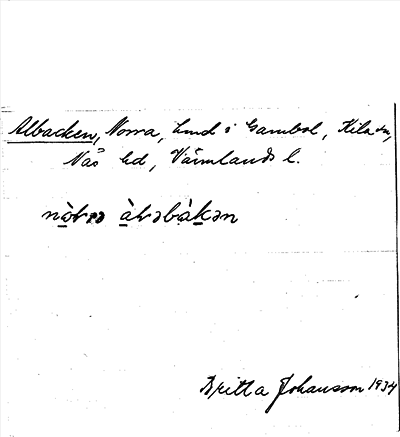 Albacken, Norra, hmd i Gambol, Kila sn,
Näs hd, Värmlands l.
nò̠rə à̠ləbà̠k̠ən
Britta Johansson 1934